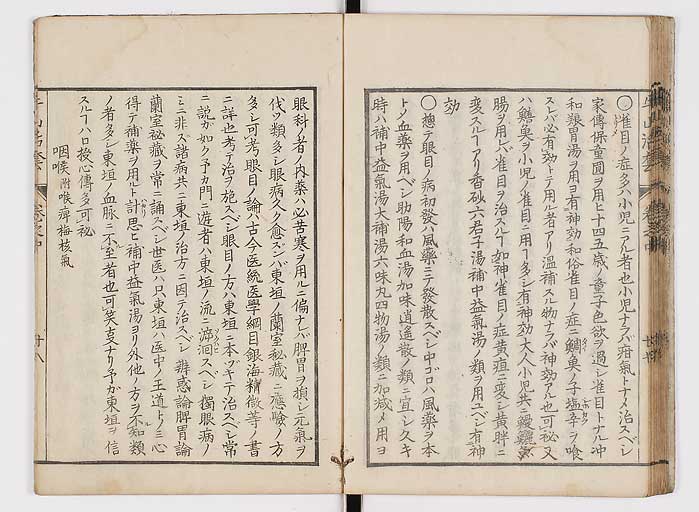 〇雀目ノ症多ハ小児ニアル者也小児ナラバ疳気トナメ治スベシ
家傳保童圓ヲ用ヒ十四五歳ノ童子色欲ヲ過シ雀目トナル冲
和粮胃湯ヲ用ヨ有神効和俗雀目ノ症ニ鯛魚ノ子塩辛ヲ喰
スレバ必有効トテ用ル者アリ温補スル物ナラバ神効アル也可秘又
ハ鱔魚ヲ小児ノ雀目ニ用テ多シ有神効大人小児共ニ鰻鱺魚
腸ヲ用レバ雀目ヲ治スル丁如神雀目ノ症黄疸ニ変シ黄胖ニ
変スル丁アリ香砂六君子湯補中益氣湯ノ類ヲ用ユベシ有神
効
〇總テ眼目ノ病初發ハ風藥ニテ發散スベシ中ゴロハ風藥ヲ本
トメ血藥ヲ用ベシ助陽和血湯加味逍遥散ノ類ニ宜シ久キ
時ハ補中益氣湯大補湯六味丸四物湯ノ類ニ加減メ用ヨ
眼科ノ者ノ内藥ハ必苦寒ヲ用ルニ偏ナレバ脾胃ヲ損シ元氣ヲ
伐ツ類多シ眼病久ク愈ズンバ東垣ノ蘭室秘藏ニ應驗ノ方
多シ可考眼目ノ論ハ古今医統医學綱目銀海精微等ノ書
ニ詳也考テ治ヲ施スベシ眼目ノ方ハ東垣ニ本ヅキテ治スベシ常
ニ説ガ如ノ予カ門ニ遊者ハ東垣ノ流ニ游泗スベシ獨眼病ノ
ミニ非ズ諸病共ニ東垣ノ治方ニ因テ治スベシ辨惑論脾胃論
蘭室秘藏ヲ常ニ誦スベシ世医ハ只東垣ハ医中ノ王道トノミ心
得テ補藥ヲ用ルト計思ヒ補中益氣湯ヨリ外他ノ方ヲ不知類
ノ者多シ東垣ノ血脈ニ不至者也可笑支ナリ予ガ東垣ヲ信
スル丁ハ口授心傳多可秘
咽喉 附喉痺梅核氣